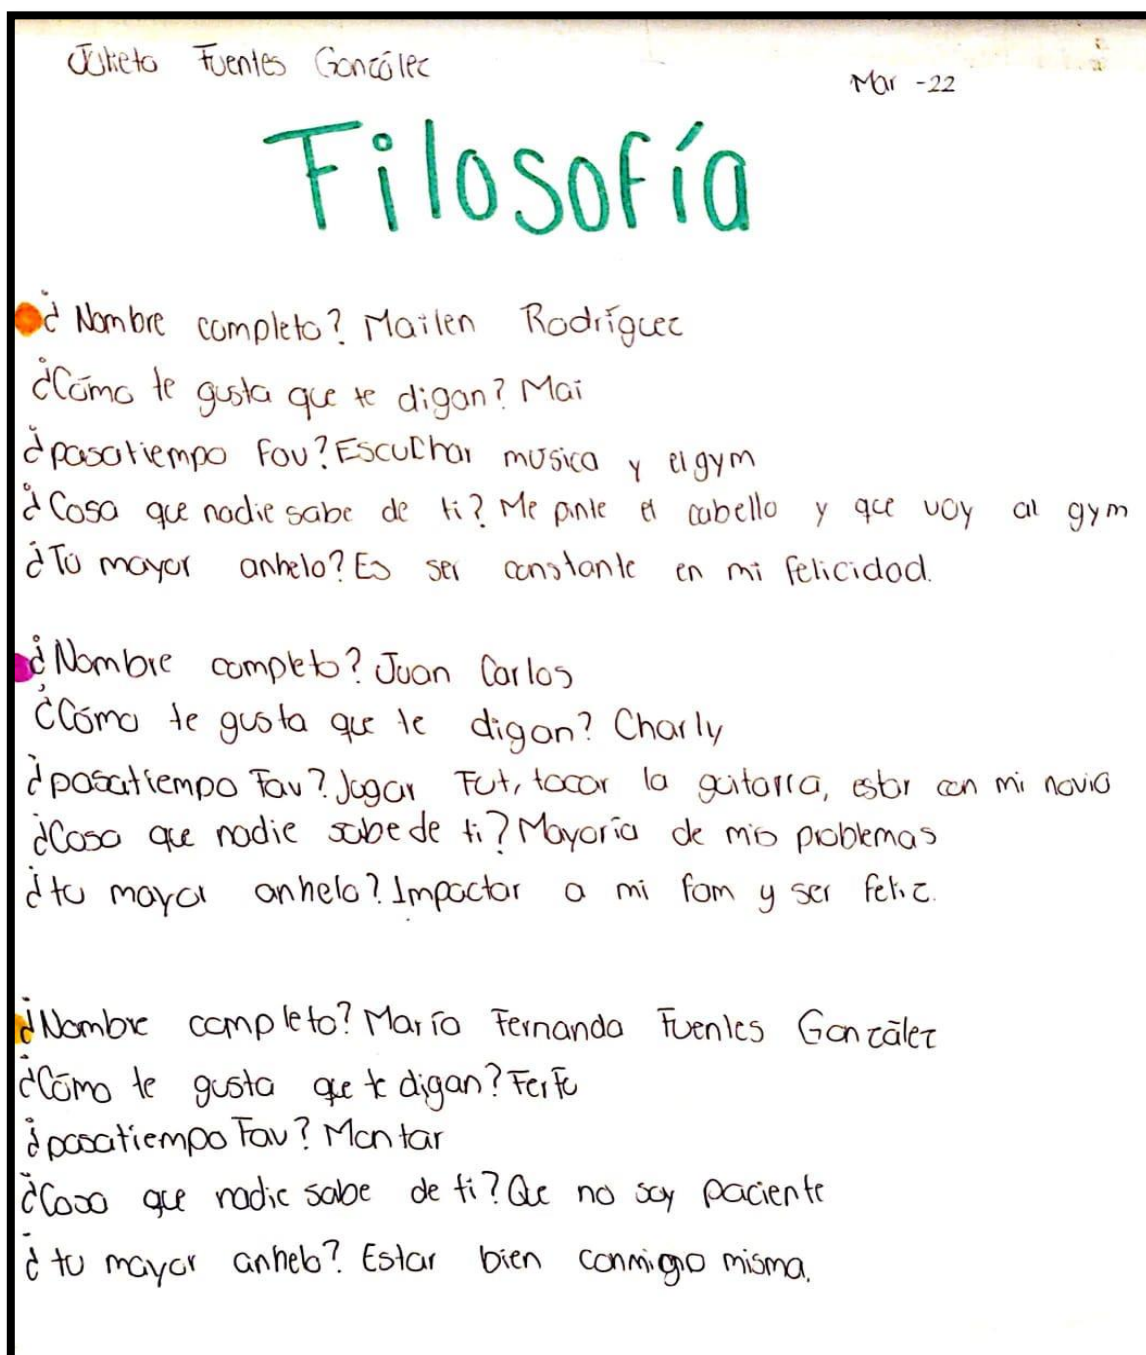 Julieta Fuentes González
Mar -22
Filosofía
¿Nombre completo? Mailen Rodríguez
¿Cómo te gusta que te digan? Mai
¿pasatiempo Fav? Escuchar musica y el gym
¿Cosa que nadie sabe de ti? Me pinte el cabello y que voy al gym
¿Tú mayor anhelo? Es ser constante en mi felicidad.
¿Nombre completo? Juan Carlos
¿Cómo te gusta que te digan? Charly
¿pasatiempo Fav? Jugar Fut, tocar la guitarra, estar con mi novia
¿Cosa que nadie sabe de ti? Mayoría de mis problemas
¿tu mayor anhelo? Impactar a mi fam y ser feliz.
¿Nombre completo? María Fernanda Fuentes González
¿Cómo te gusta que te digan? FerFe
¿pasatiempo Fav? Montar
¿Cosa que nadie sabe de ti? Que no soy paciente
¿tu mayor anhelo? Estar bien conmigo misma.